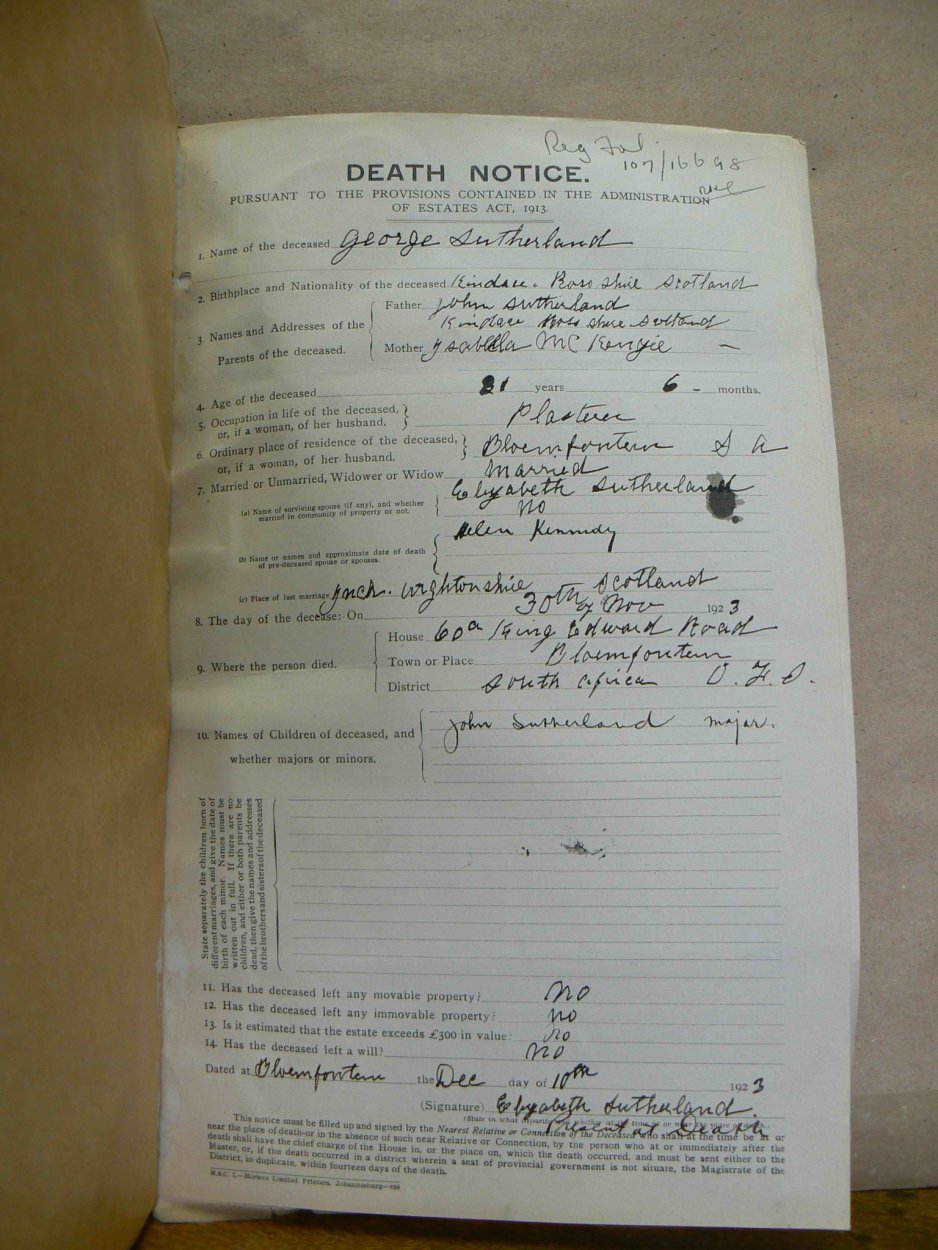 Reg Fol
107/16698
DEATH NOTICE.
PURSUANT TO THE PROVISIONS CONTAINED IN THE ADMINISTRATION
OF ESTATES ACT, 1913.
1. Name of the deceased George Sutherland
2. Birthplace and Nationality of the deceased Kindace. Ross shire Scotland
3. Names and Addresses of the Parents of the deceased.
Father John Sutherland
Kindace Ross shire Scotland
Mother Ysabella McKenzie —
4. Age of the deceased 81 years 6 - months.
5. Occupation in life of the deceased,
or, if a woman, of her husband. Plasterer
6. Ordinary place of residence of the deceased,
or, if a woman, of her husband. Bloemfontein S A
7. Married or Unmarried, Widower or Widow Married
(a) Name of surviving spouse (if any), and whether
married in community of property or not. Elizabeth Sutherland
No
(b) Name or names and approximate date of death
of pre-deceased spouse or spouses. Helen Kennedy
(c) Place of last marriage Inch. Wightonshire Scotland
8. The day of the decease: On 30th of Nov 1923
9. Where the person died.
House 60a King Edward Road
Town or Place Bloemfontein
District South Africa O. F. S.
10. Names of Children of deceased, and
whether majors or minors.
John Sutherland major.
State separately the children born of
different marriages, and give the date of
birth of each minor. Names must be
written out in full. If there are no
children, and either or both parents be
dead, then give the names and addresses
of the brothers and sisters of the deceased
11. Has the deceased left any movable property? No
12. Has the deceased left any immovable property? No
13. Is it estimated that the estate exceeds £300 in value? No
14. Has the deceased left a will? No
Dated at Bloemfontein the Dec day of 10th 1923
(Signature) Elizabeth Sutherland.
Present at Death
This notice must be filled up and signed by the Nearest Relative or Connection of the Deceased who shall at the time be at or
near the place of death—or in the absence of such near Relative or Connection, by the person who at or immediately after the
death shall have the chief charge of the House in, or the place on, which the death occurred, and must be sent either to the
Master, or, if the death occurred in a district wherein a seat of provincial government is not situate, the Magistrate of the
District, in duplicate, within fourteen days of the death.
Hortors Limited Printers, Johannesburg